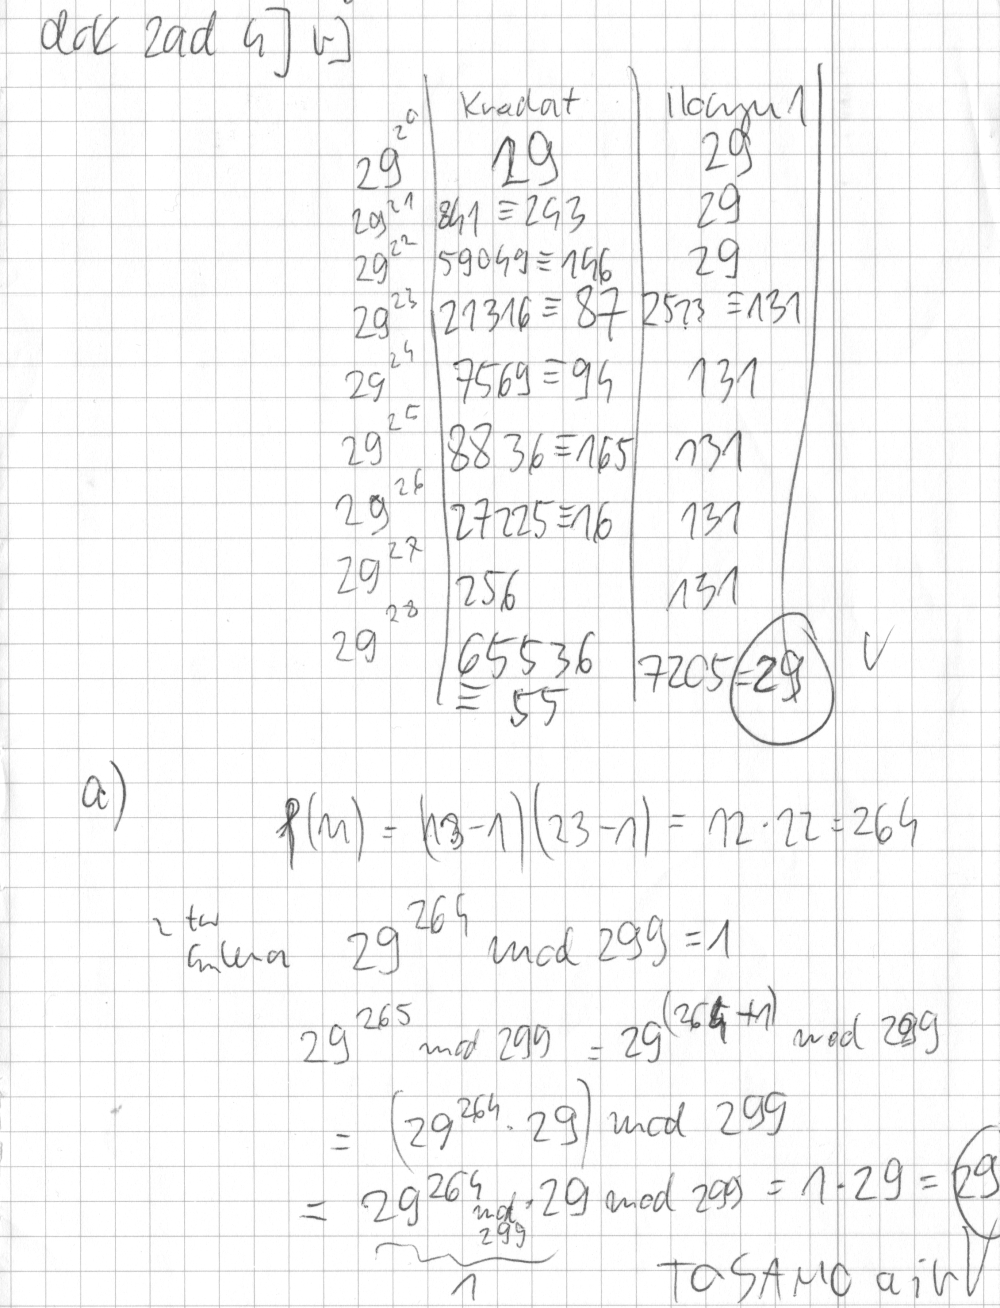 dok zad 4] b]
kwadrat iloczyn 1
29^2^0 29 29
29^2^1 841 ≡ 243 29
29^2^2 59049 ≡ 146 29
29^2^3 21316 ≡ 87 2523 ≡ 131
29^2^4 7569 ≡ 94 131
29^2^5 8836 ≡ 165 131
29^2^6 27225 ≡ 16 131
29^2^7 256 131
29^2^8 65536 7205 = 29 V
≡ 55
a)
φ(n) = (13-1)(23-1) = 12·22 = 264
z tw
Eulera 29^264 mod 299 = 1
29^265 mod 299 = 29^(264+1) mod 299
= (29^264 · 29) mod 299
= 29^264 mod 299 · 29 mod 299 = 1·29 = 29
1 TO SAMO a i b V